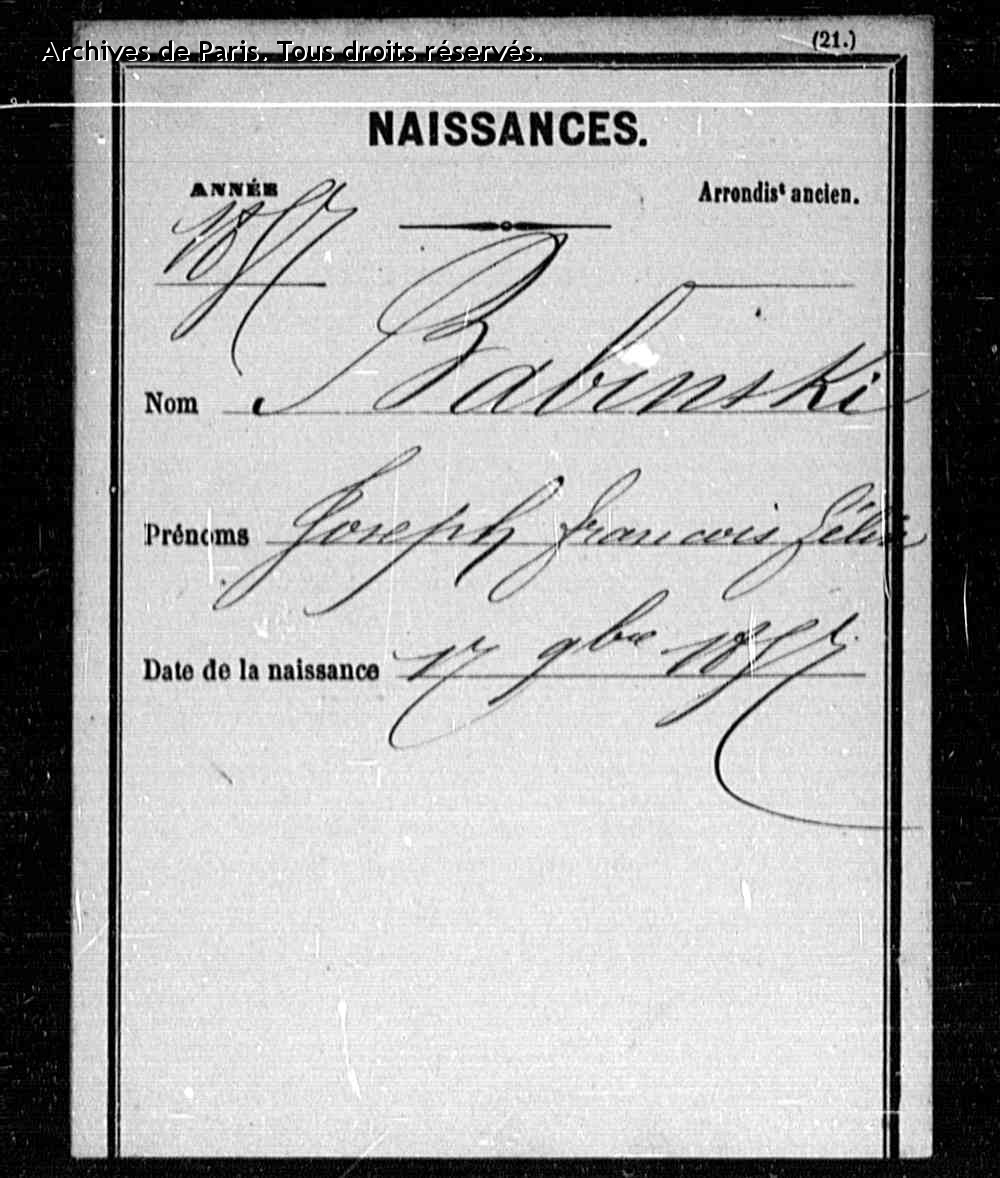 (21.)
Archives de Paris. Tous droits réservés.
NAISSANCES.
ANNÉE
Arrondis^t ancien.
1857
Nom Babinski
Prénoms Joseph francois félix
Date de la naissance 17 9bre 1857